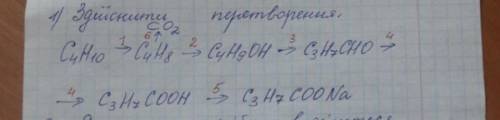 1) Здійснити перетворення.
CO2
C4H10 →1 C4H8 →2 C4H9OH →3 C3H7CHO →4
→4 C3H7COOH →5 C3H7COONa